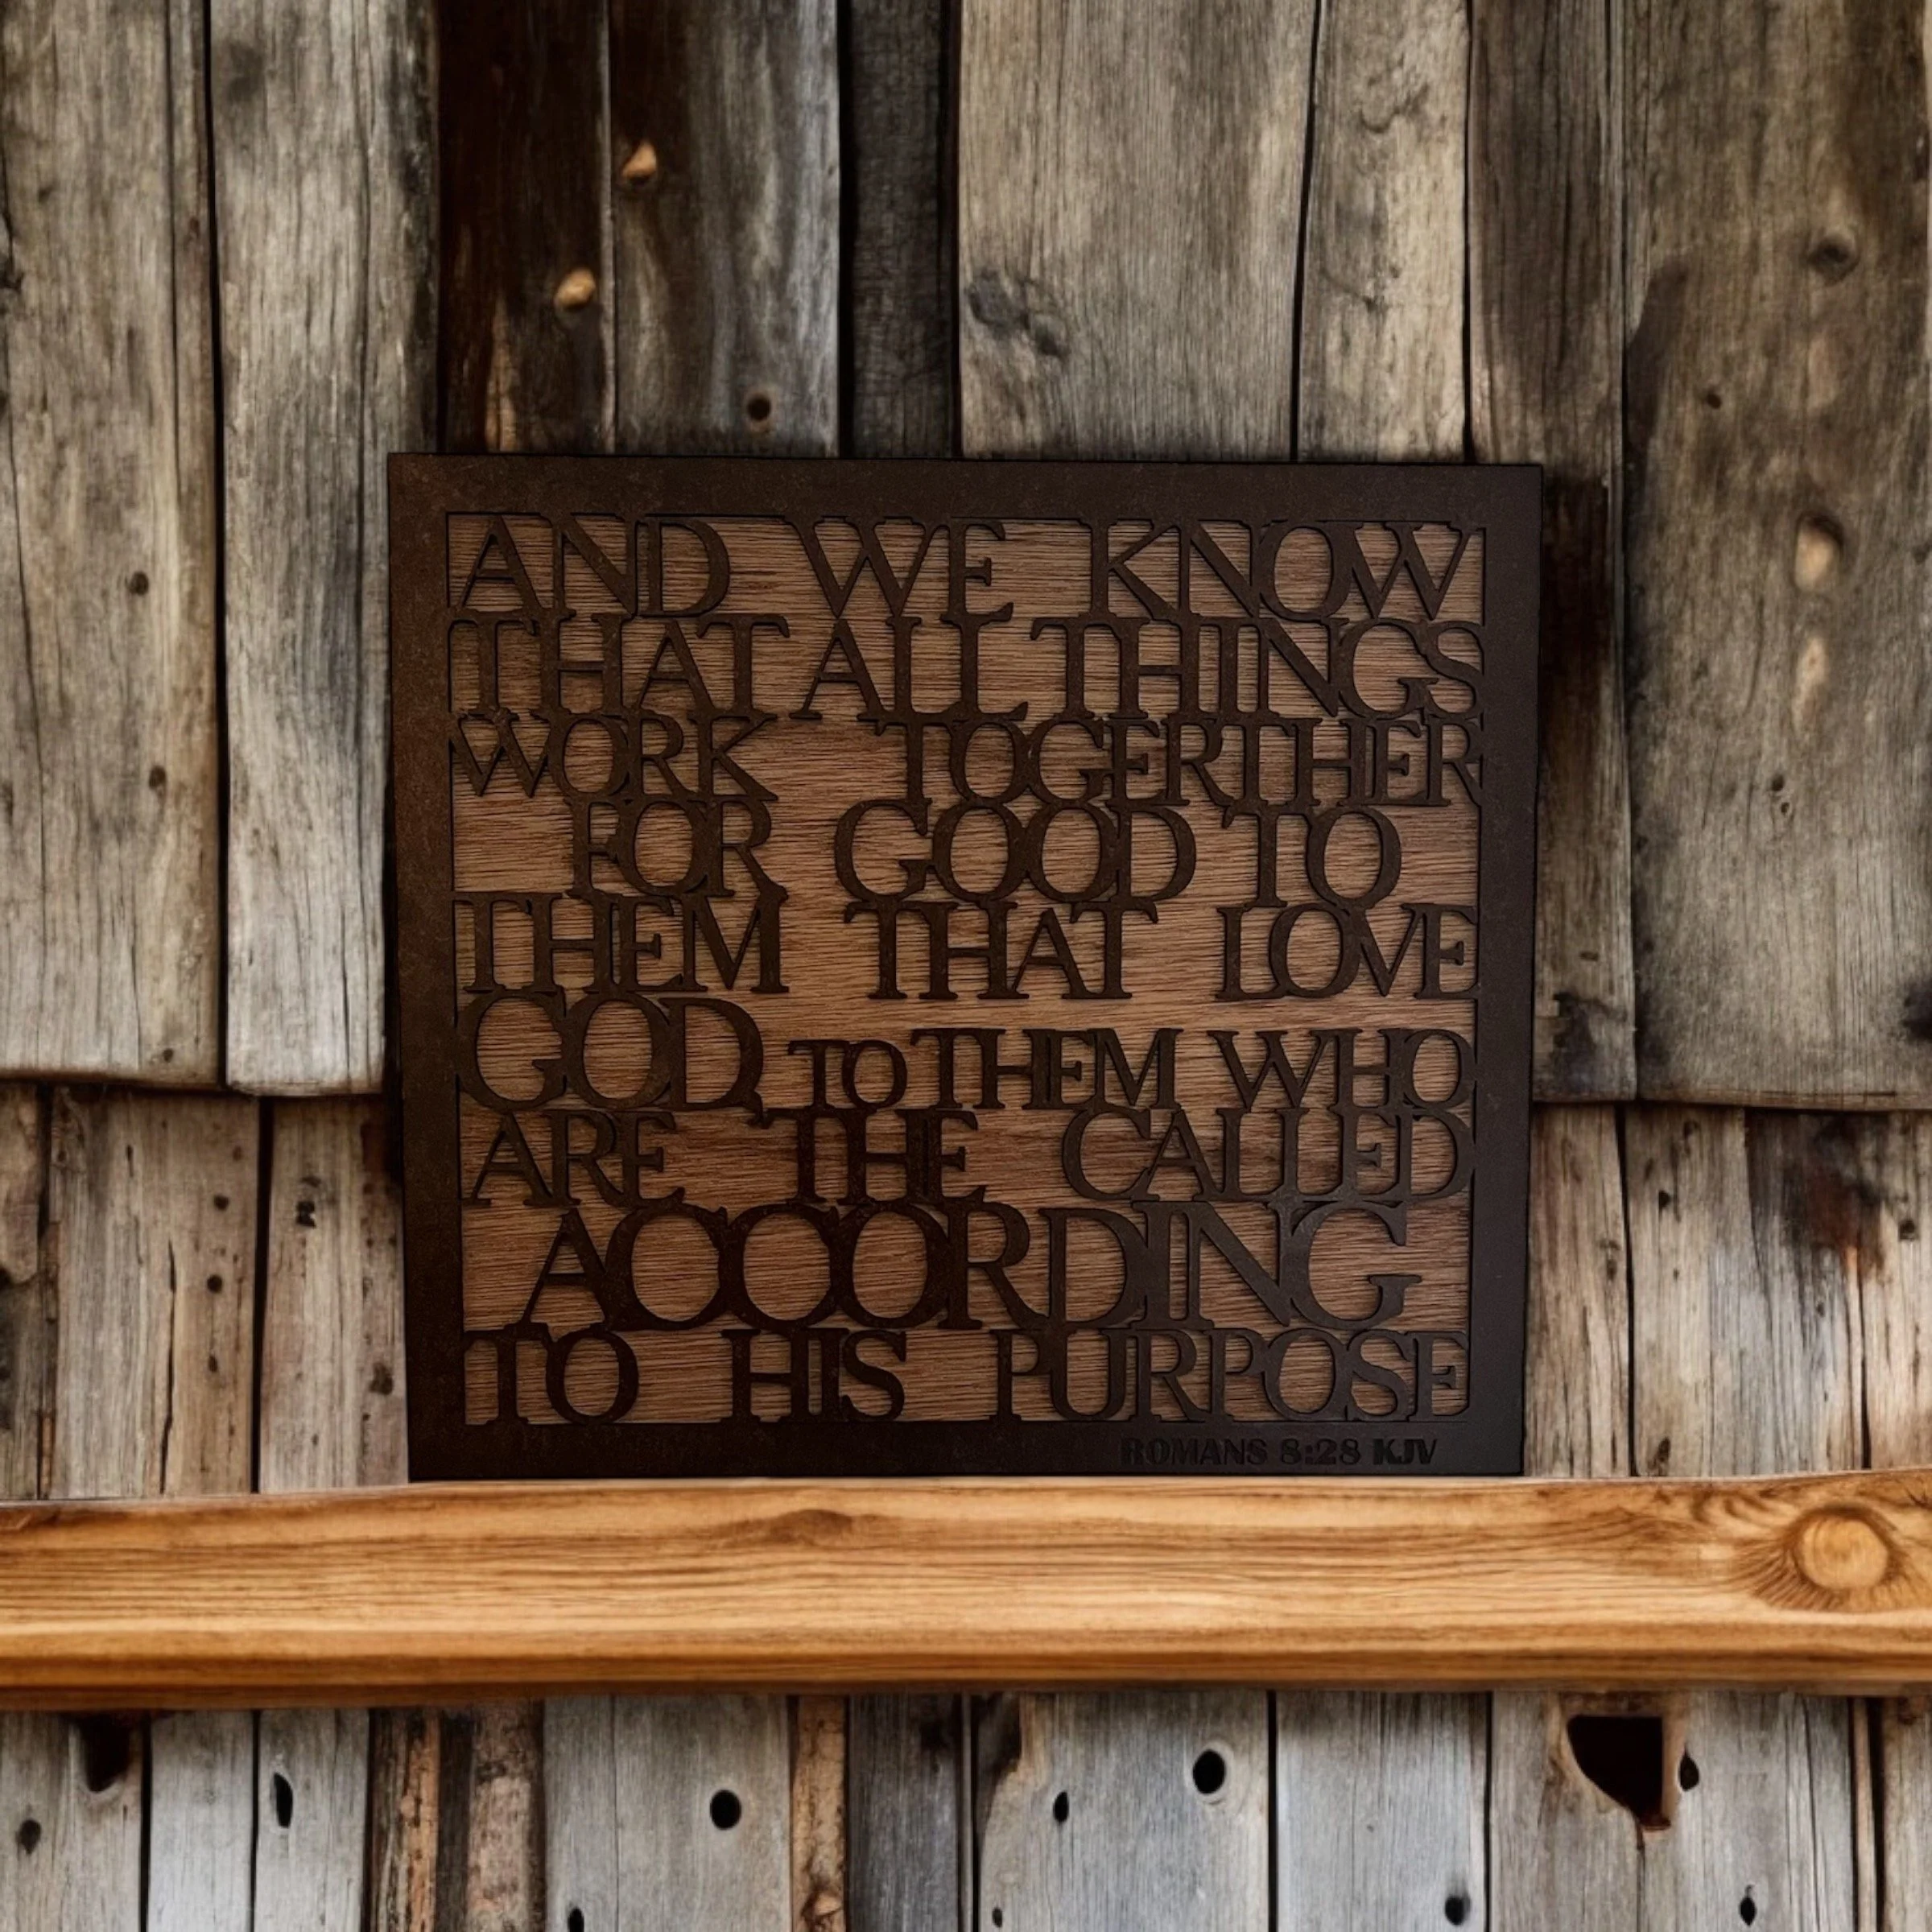 AND WE KNOW
THAT ALL THINGS
WORK TOGERTHER
FOR GOOD TO
THEM THAT LOVE
GOD, TO THEM WHO
ARE THE CALLED
ACCORDING
TO HIS PURPOSE
ROMANS 8:28 KJV